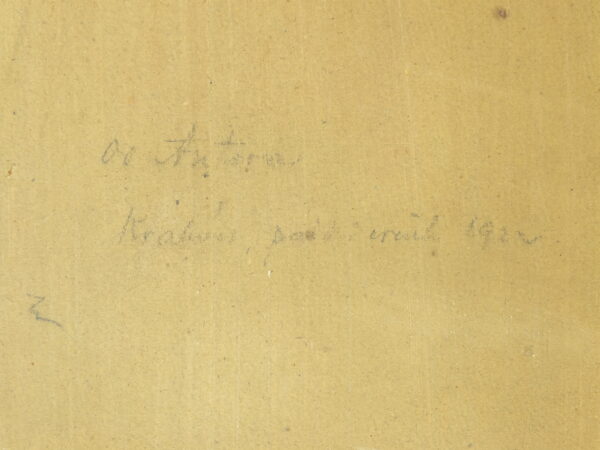 Od Autora
Kraków październik 1922